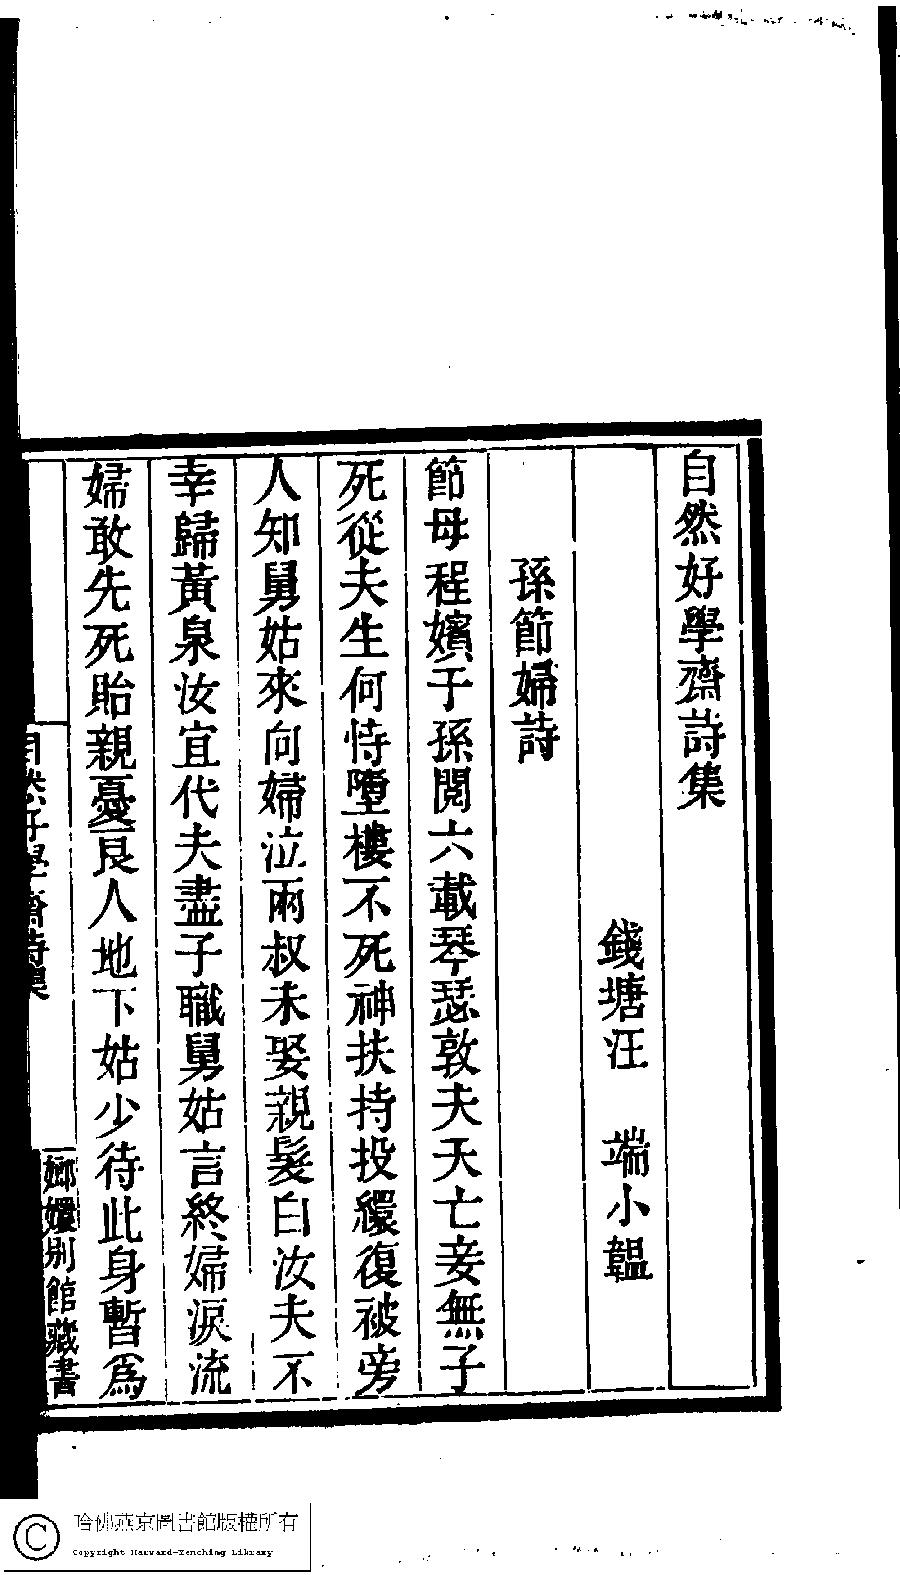 自然好學齋詩集
錢塘汪　端小韞
孫節婦詩
節母程嬪子孫閱六載琴瑟敦夫夭亡妾無子
死從夫生何恃墮樓不死神扶持投繯復被旁
人知舅姑來向婦泣兩叔未娶親髮白汝夫不
幸歸黃泉汝宜代夫盡子職舅姑言終婦淚流
婦敢先死貽親憂良人地下姑少待此身暫爲
自然好學齋詩集
嫏嬛別館藏書
哈佛燕京圖書館版權所有
Copyright Harvard-Yenching Library